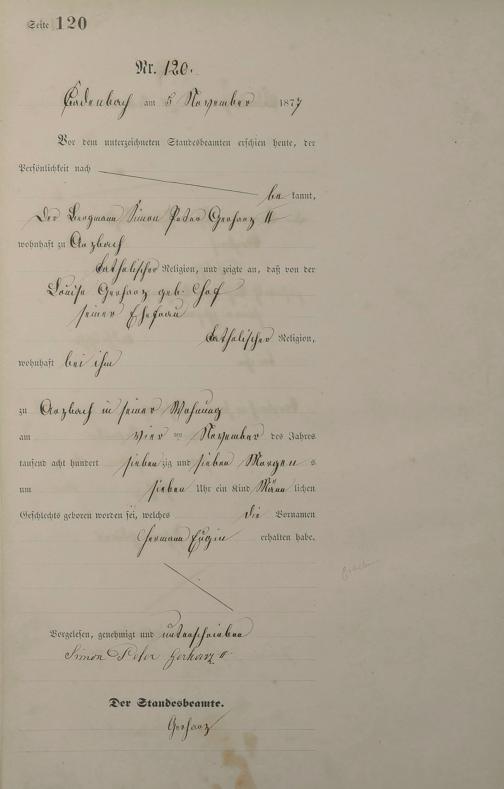 Seite 120
Nr. 120.
Kadenbach am 5 November 1877
Vor dem unterzeichneten Standesbeamten erschien heute, der
Persönlichkeit nach
be kannt,
der Bergmann Simon Peter Gerharz II
wohnhaft zu Arzbach
katholischer Religion, und zeigte an, daß von der
Louise Gerharz geb.
seiner Ehefrau
katholischer Religion,
wohnhaft bei ihm
zu Arzbach in seiner Wohnung
am vier ten November des Jahres
tausend acht hundert sieben zig und sieben Morgen s
um sieben Uhr ein Kind Männ lichen
Geschlechts geboren worden sei, welches die Vornamen
Hermann Eugin erhalten habe.
Vorgelesen, genehmigt und unterschrieben
Simon Peter Gerharz II
Der Standesbeamte.
Gerharz